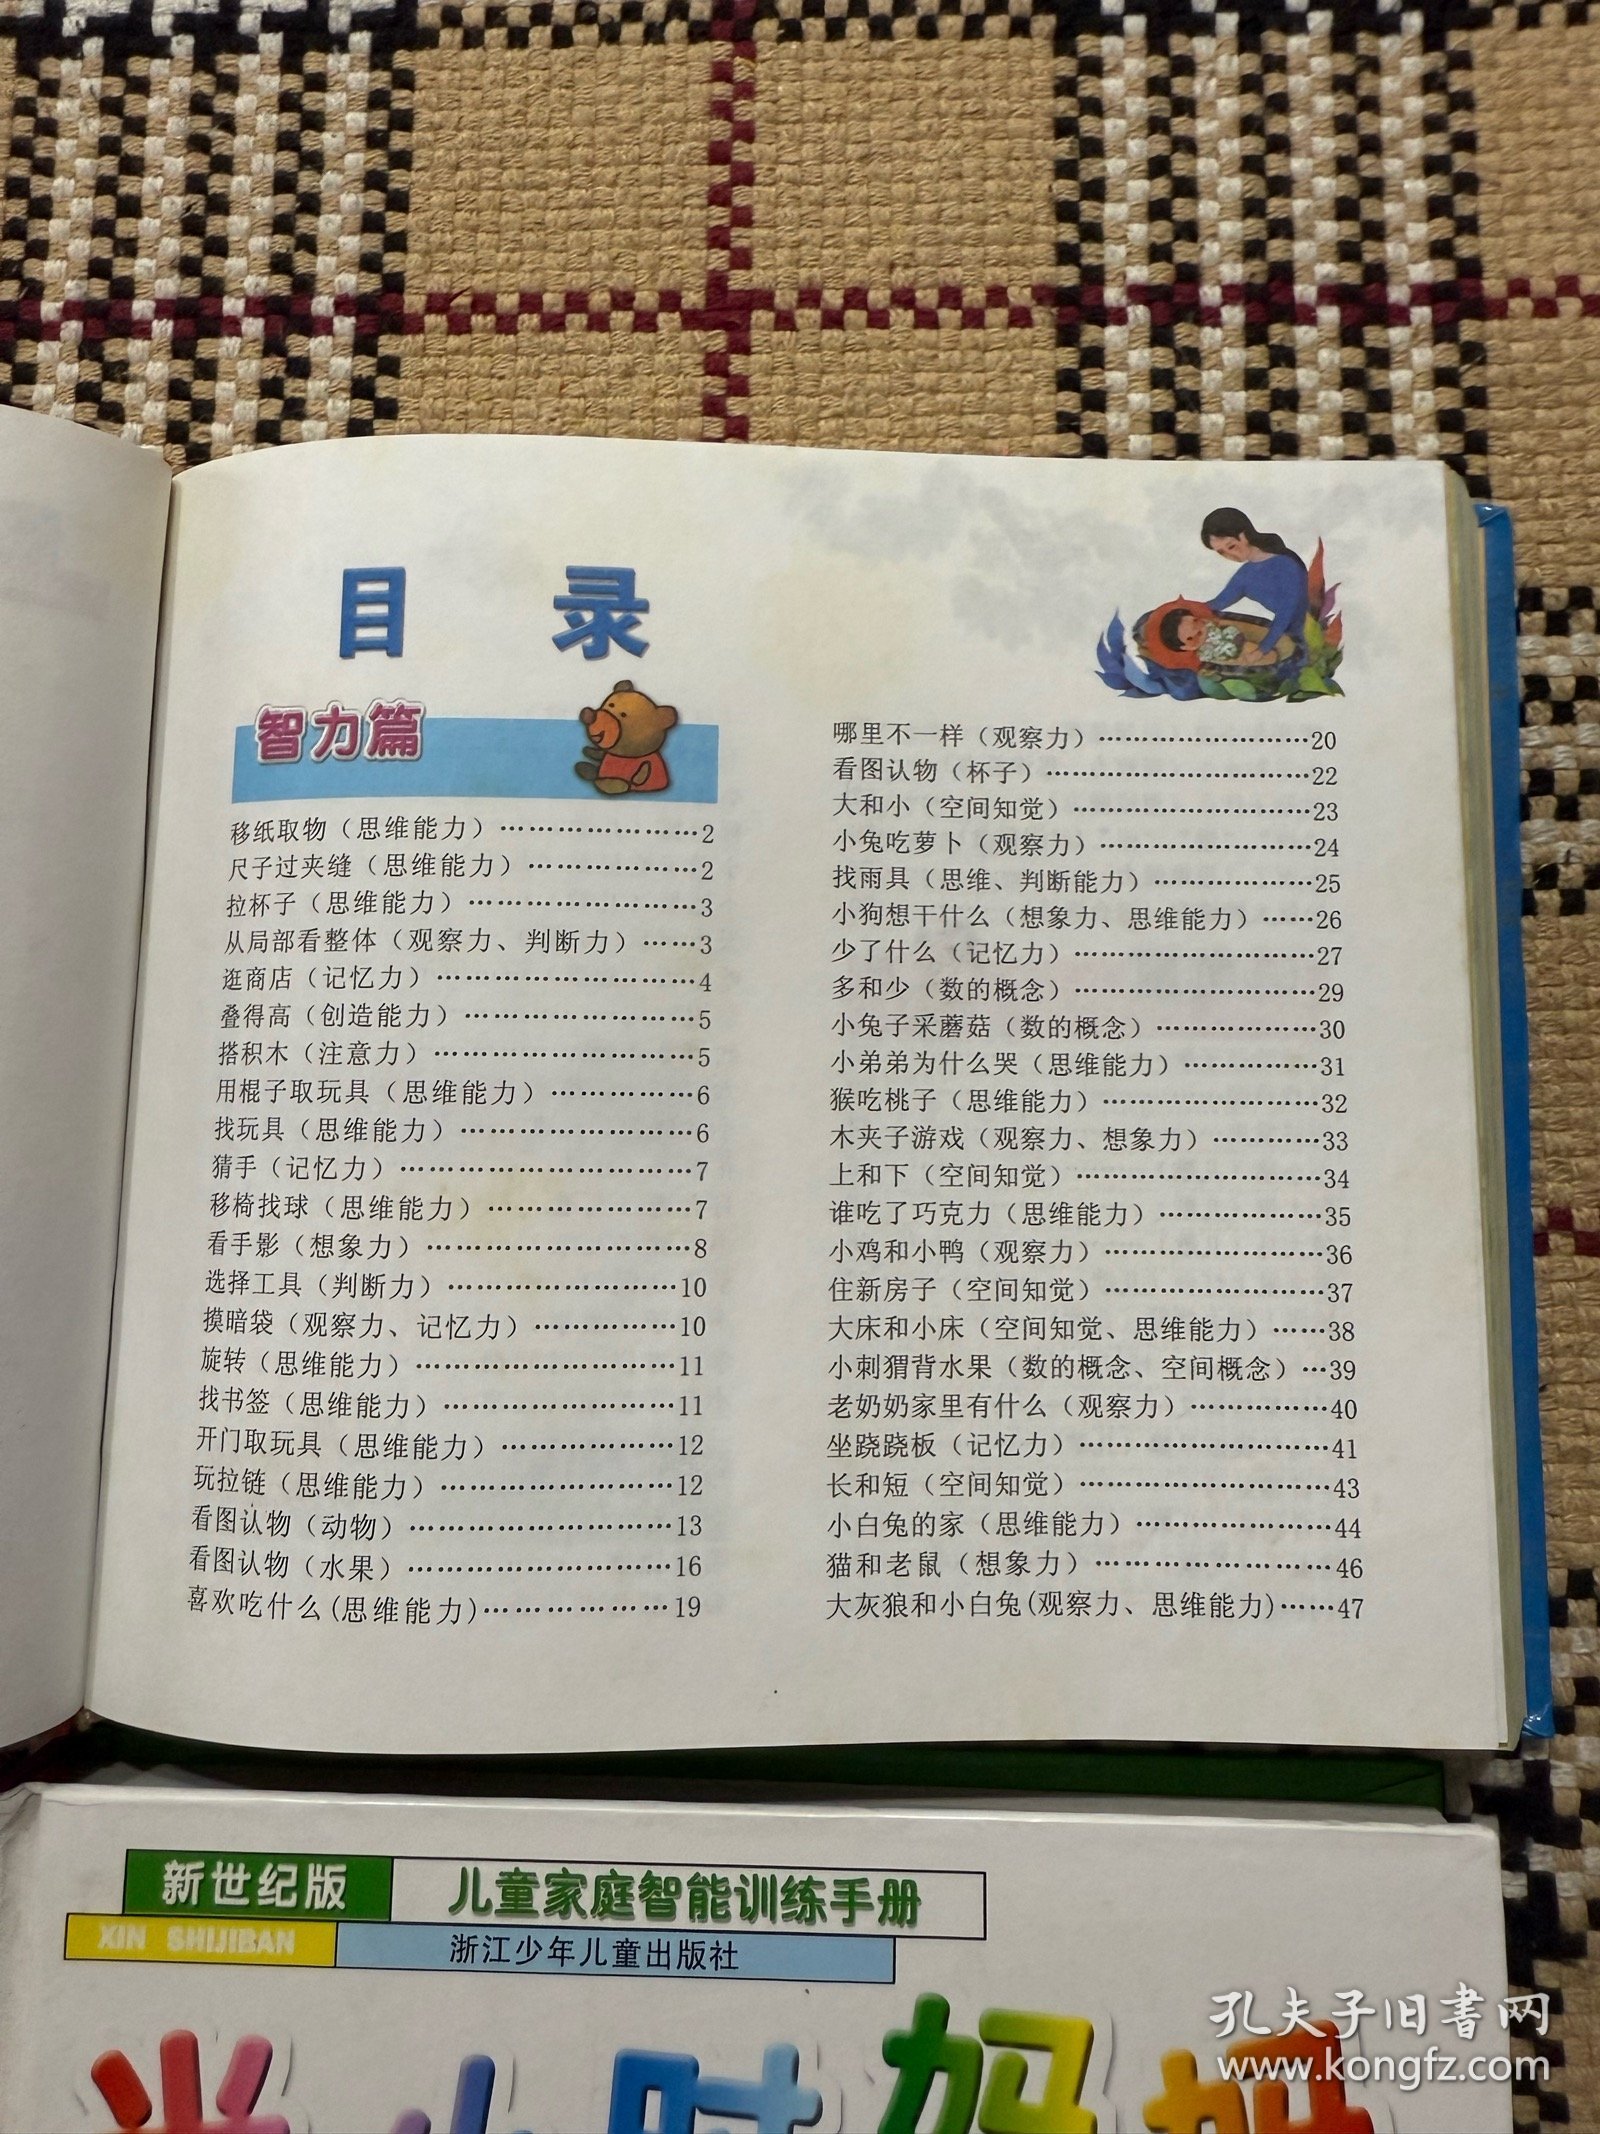 目 录
智力篇
移纸取物（思维能力）…………………2
尺子过夹缝（思维能力）………………2
拉杯子（思维能力）……………………3
从局部看整体（观察力、判断力）……3
逛商店（记忆力）………………………4
叠得高（创造能力）……………………5
搭积木（注意力）………………………5
用棍子取玩具（思维能力）……………6
找玩具（思维能力）……………………6
猜手（记忆力）…………………………7
移椅找球（思维能力）…………………7
看手影（想象力）………………………8
选择工具（判断力）……………………10
摸暗袋（观察力、记忆力）……………10
旋转（思维能力）………………………11
找书签（思维能力）……………………11
开门取玩具（思维能力）………………12
玩拉链（思维能力）……………………12
看图认物（动物）………………………13
看图认物（水果）………………………16
喜欢吃什么(思维能力)………………19
哪里不一样（观察力）……………………20
看图认物（杯子）…………………………22
大和小（空间知觉）………………………23
小兔吃萝卜（观察力）……………………24
找雨具（思维、判断能力）………………25
小狗想干什么（想象力、思维能力）……26
少了什么（记忆力）………………………27
多和少（数的概念）………………………29
小兔子采蘑菇（数的概念）………………30
小弟弟为什么哭（思维能力）……………31
猴吃桃子（思维能力）……………………32
木夹子游戏（观察力、想象力）…………33
上和下（空间知觉）………………………34
谁吃了巧克力（思维能力）………………35
小鸡和小鸭（观察力）……………………36
住新房子（空间知觉）……………………37
大床和小床（空间知觉、思维能力）……38
小刺猬背水果（数的概念、空间概念）…39
老奶奶家里有什么（观察力）……………40
坐跷跷板（记忆力）………………………41
长和短（空间知觉）………………………43
小白兔的家（思维能力）…………………44
猫和老鼠（想象力）………………………46
大灰狼和小白兔(观察力、思维能力)……47
新世纪版
儿童家庭智能训练手册
XIN SHIJIBAN
浙江少年儿童出版社
半小时妈妈
孔夫子旧书网
www.kongfz.com